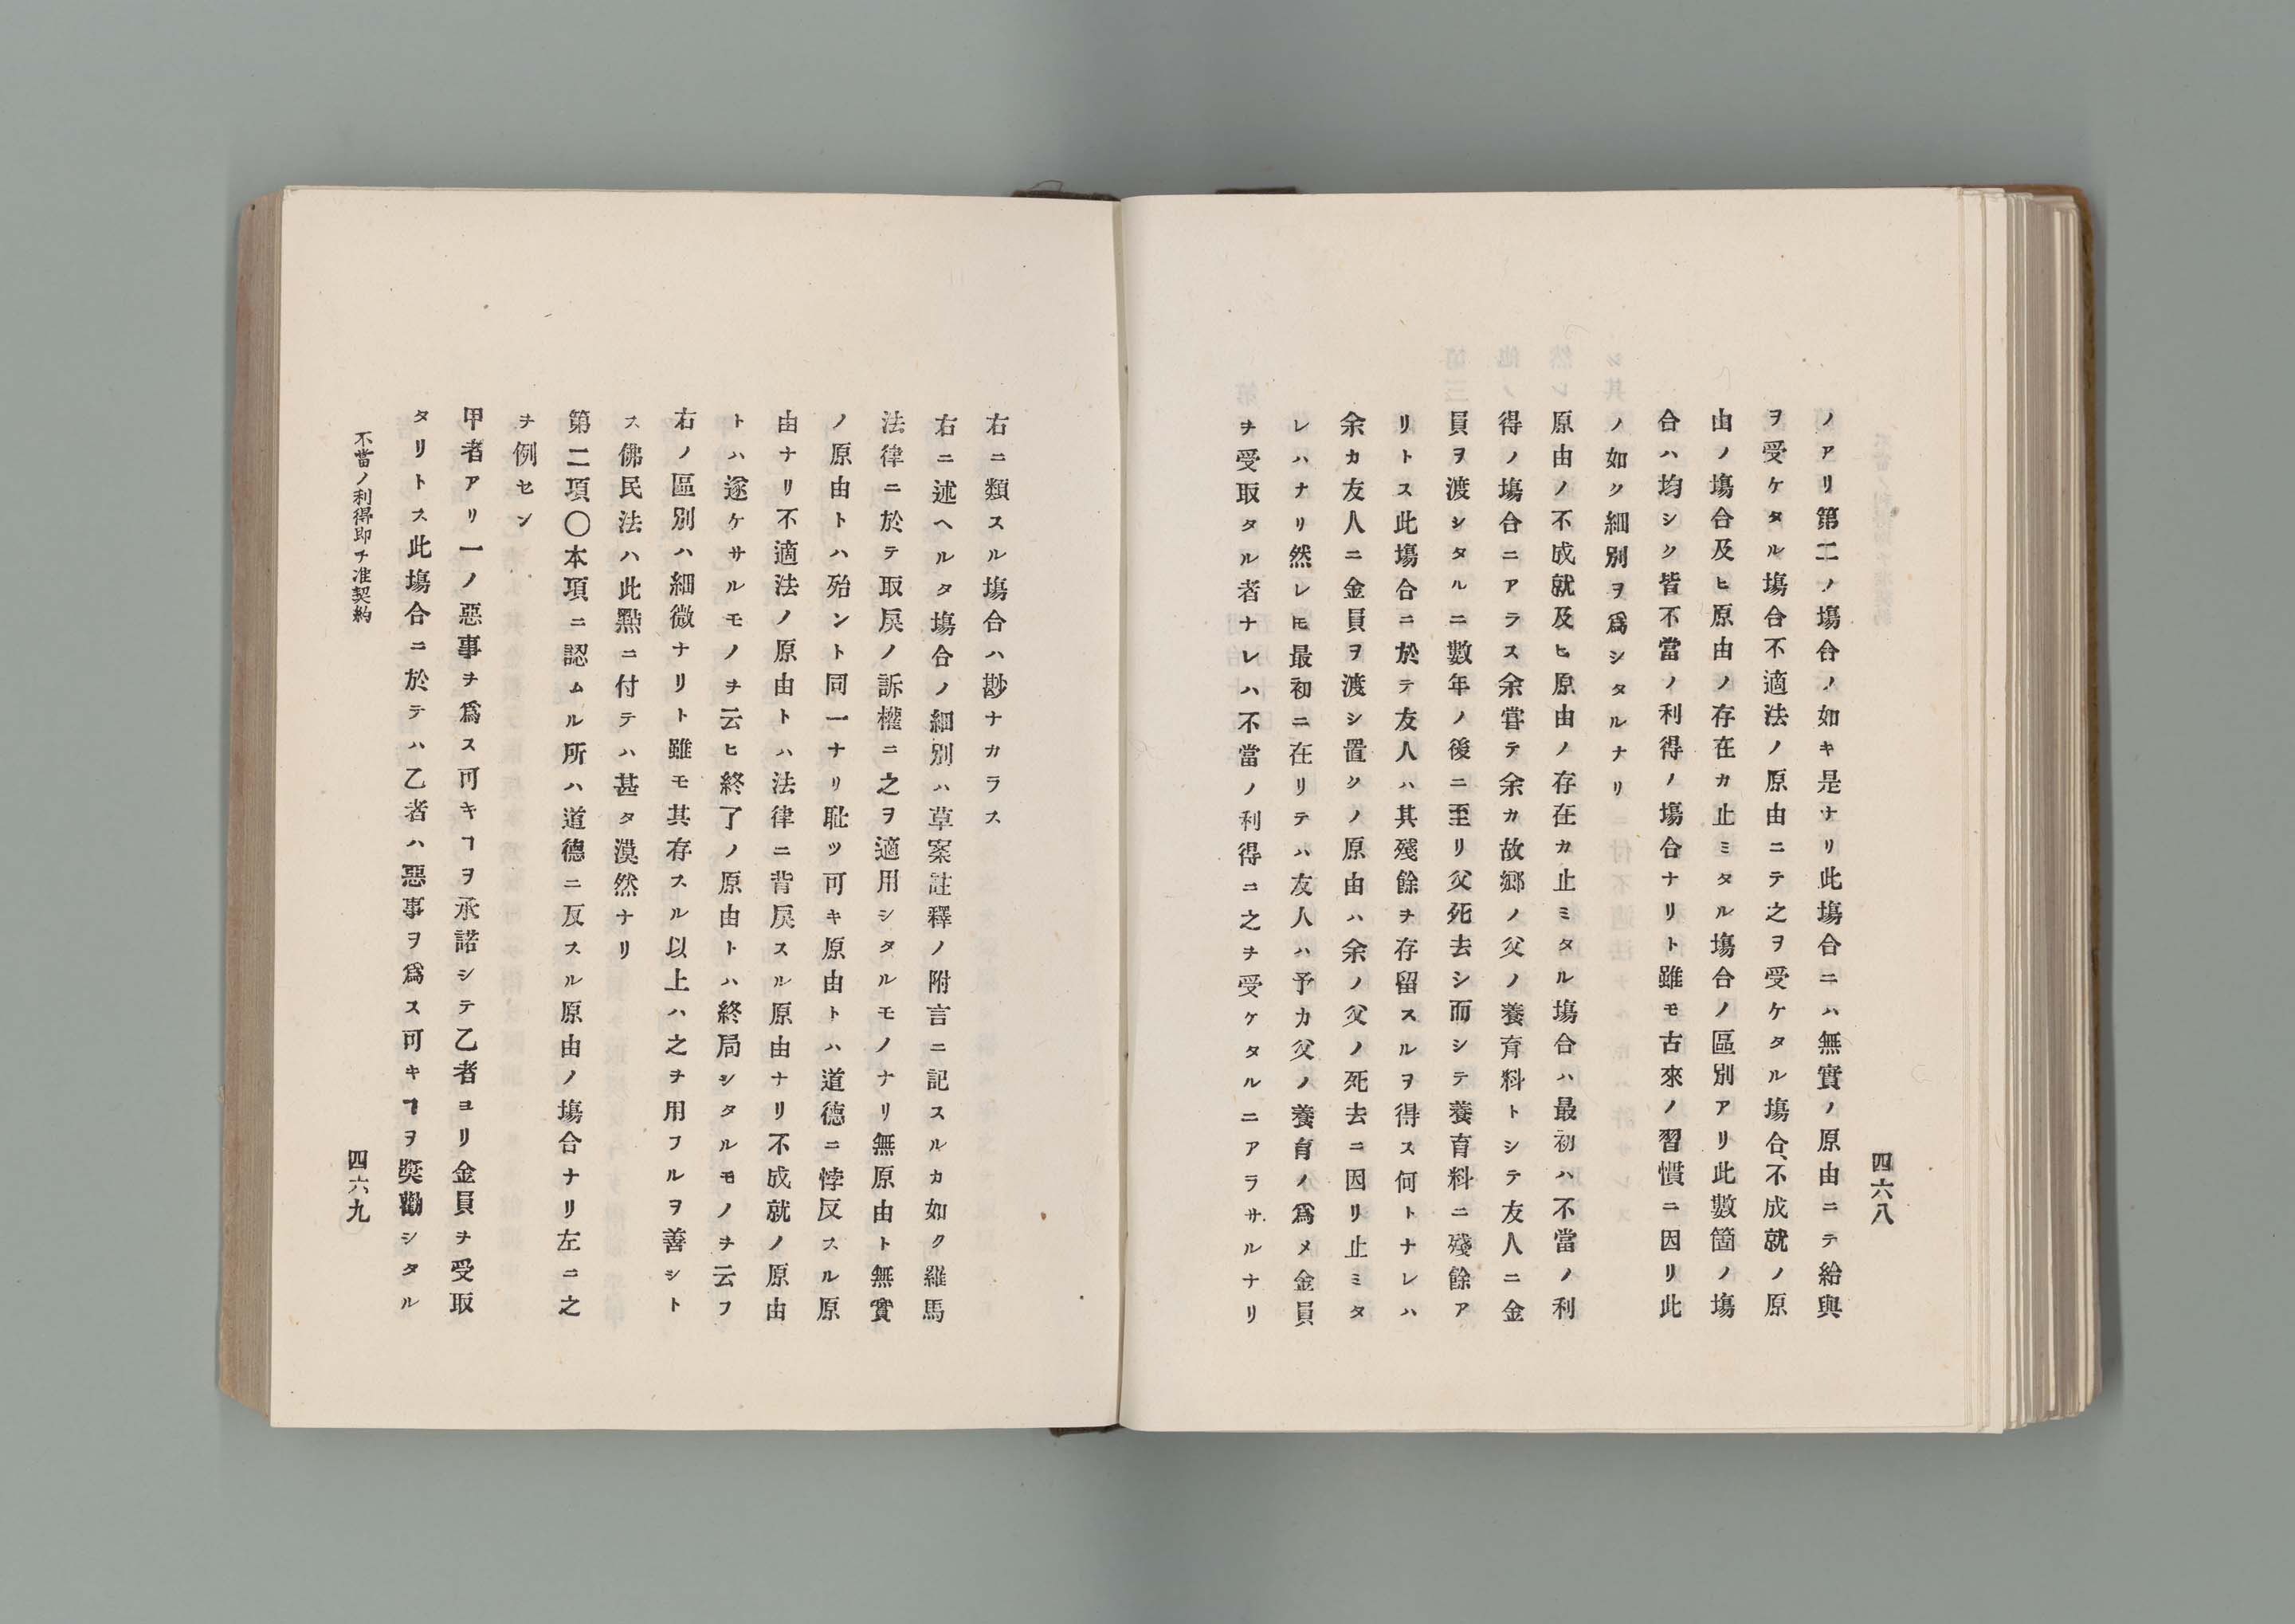 四六八
ノアリ第二ノ塲合ノ如キ是ナリ此塲合ニハ無實ノ原由ニテ給與
ヲ受ケタル塲合不適法ノ原由ニテ之ヲ受ケタル塲合、不成就ノ原
由ノ塲合及ヒ原由ノ存在カ止ミタル塲合ノ區別アリ此數箇ノ塲
合ハ均シク皆不當ノ利得ノ塲合ナリト雖モ古來ノ習慣ニ因リ此
ノ如ク細別ヲ爲シタルナリ
原由ノ不成就及ヒ原由ノ存在カ止ミタル塲合ハ最初ハ不當ノ利
得ノ塲合ニアラス余嘗テ余カ故郷ノ父ノ養育料トシテ友人ニ金
員ヲ渡シタルニ數年ノ後ニ至リ父死去シ而シテ養育料ニ殘餘ア
リトス此塲合ニ於テ友人ハ其殘餘ヲ存留スルヲ得ス何トナレハ
余カ友人ニ金員ヲ渡シ置クノ原由ハ余ノ父ノ死去ニ因リ止ミタ
レハナリ然レㇳモ最初ニ在リテハ友人ハ予カ父ノ養育ノ爲メ金員
ヲ受取タル者ナレハ不當ノ利得ニ之ヲ受ケタルニアラサルナリ
右ニ類スル塲合ハ尠ナカラス
右ニ述ヘルタ塲合ノ細別ハ草案註釋ノ附言ニ記スルカ如ク羅馬
法律ニ於テ取戻ノ訴權ニ之ヲ適用シタルモノナリ無原由ト無實
ノ原由トハ殆ント同一ナリ耻ツ可キ原由トハ道德ニ悖反スル原
由ナリ不適法ノ原由トハ法律ニ背戻スル原由ナリ不成就ノ原由
トハ遂ケサルモノヲ云ヒ終了ノ原由トハ終局シタルモノヲ云フ
右ノ區別ハ細微ナリト雖モ其存スル以上ハ之ヲ用フルヲ善シト
ス佛民法ハ此㸃ニ付テハ甚タ漠然ナリ
第二項〇本項ニ認ムル所ハ道德ニ反スル原由ノ塲合ナリ左ニ之
ヲ例セン
甲者アリ一ノ惡事ヲ爲ス可キヿヲ承諾シテ乙者ヨリ金員ヲ受取
タリトス此塲合ニ於テハ乙者ハ惡事ヲ爲ス可キヿヲ奬勸シタル
不當ノ利得即チ准契約
四六九